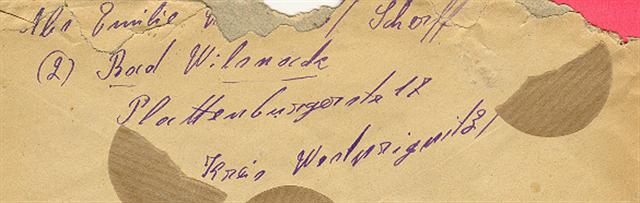 Abs Emilie / Schorff
(2) Bad Wilsnack
Plattenburgerste 17
Kreis Westprignitz/